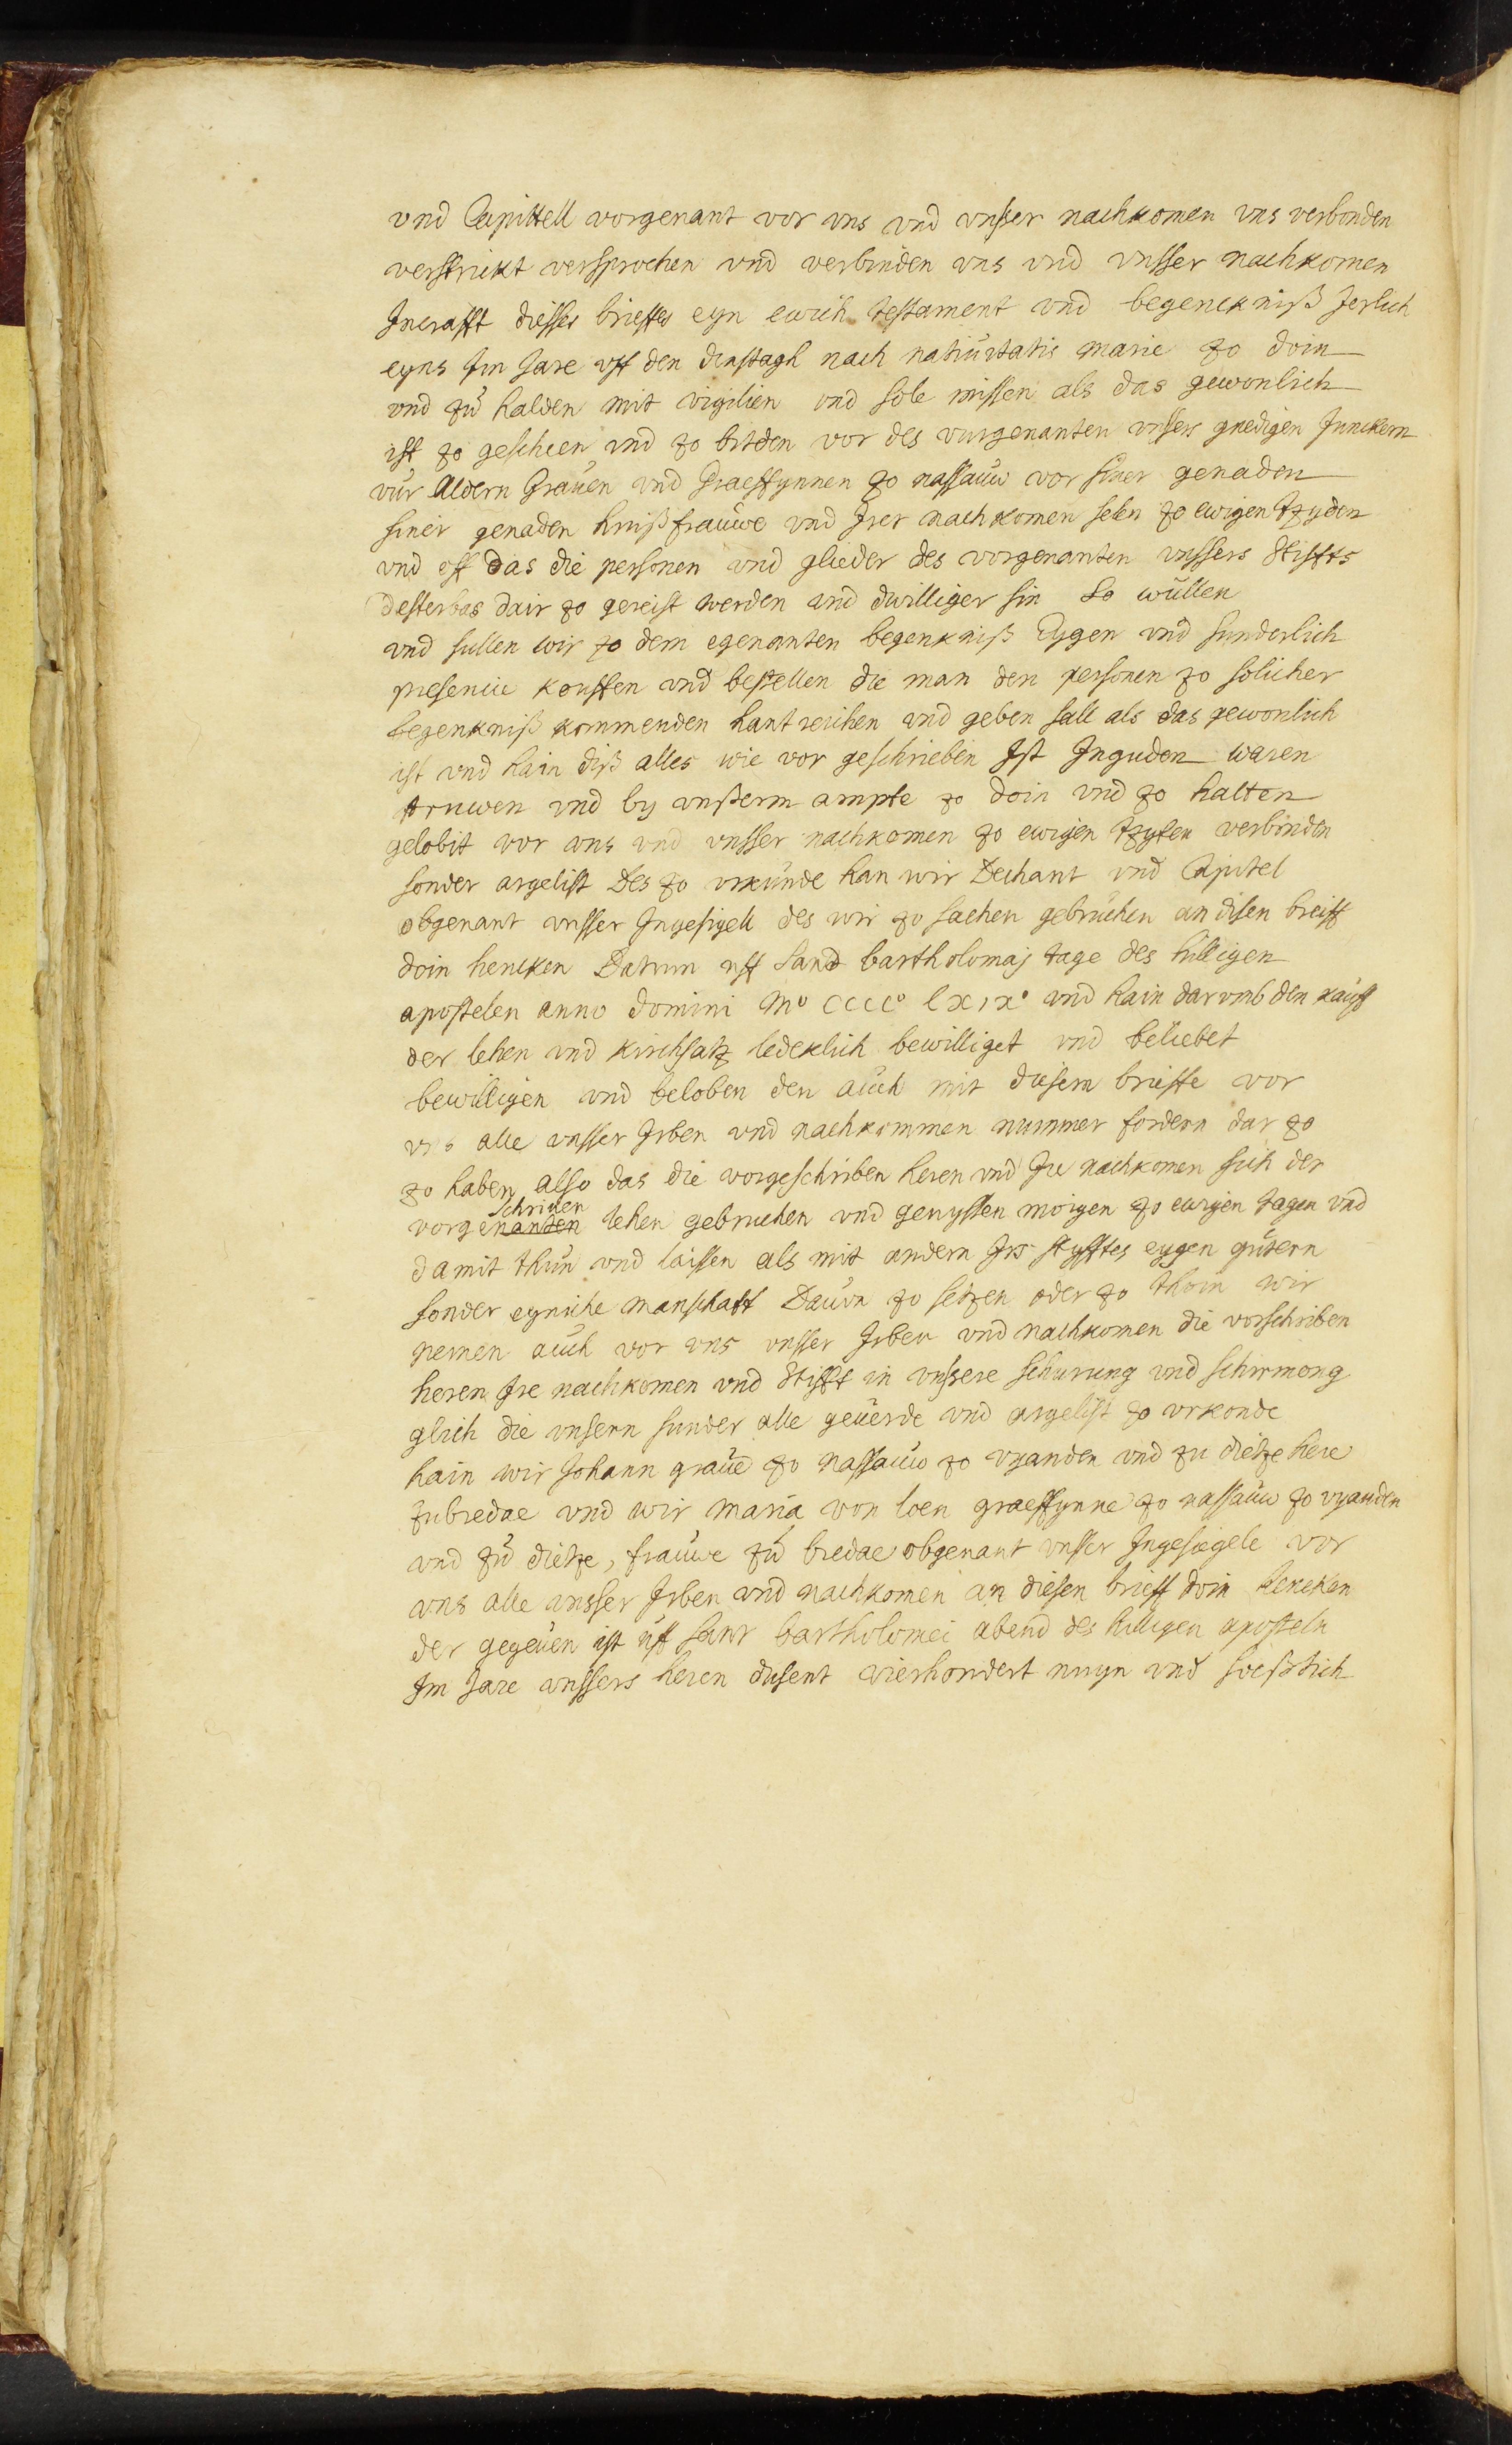 vnd Capittell vorgenant vor vns vnd vnßer nachkomen vns verbonden
verstrickt versprochen vnd verbinden vns vnd vnsser nachkomen
Incrafft diesses brieffes eyn ewich testament vnd begenckniß Jerlich
eyns Im Jare vff den dinstagh nach natiuitatis marie zo doin
vnd zu halden mit vigilien vnd sele missen als das gewonlich
ist zo geschien vnd zo bidden vor des vurgenanten vnsers gnedigen Junckern
vur Aldern Grauen vnd Graeffynnen zo nassauw vor siner genaden
siner genaden hußfrauwe vnd Irer nachkomen selen zo ewigen tzyden
vnd off das die personen vnd glieder des vorgenanten vnssers Stiffts
desterbas dair zo gereist werden vnd dwilliger sin So wullen
vnd sullen wir zo dem egenanten begenkniß Eygen vnd sunderlich
presencie kouffen vnd bestellen die man den personen zo solicher
begenkniß kommenden hantreichen vnd geben sall als das gewonlich
ist vnd hain diß alles wie vor geschrieben Ist Inguden waren
truwen vnd by vnßerm ampte zo doin vnd zo halten
gelobit vor vns vnd vnsser nachkomen zo ewigen tzyten verbinden
sonder argelist Des zo vrkunde han wir Dechant vnd Capitel
obgenant vnsser Ingesigell des wir zo sachen gebruchen an disen breiff
doin hencken Datum vff Sand bartholomaj tage des hilligen
apostelen anno domini Mo CCCCo lxixo vnd hain darvmb den kauff
der lehen vnd kirchsatz ledeklich bewilliget vnd beliebet
bewilligen vnd beloben den auch mit diesem brieffe vor
vns alle vnsser Irben vnd nachkommen nummer fordern dar zo
zo haben also das die vorgeschriben heren vnd Ire nachkomen sich der
schriben
vorgenanten lehen gebruchen vnd genyssen moigen zo ewigen tagen vnd
damit thun vnd laissen als mit andern Irs styfftes eygen gutern
sonder eyniche manschafft Dauon zo setzen oder zo thoin wir
nemen auch vor vns vnsser Irben vnd nachkomen die vorschriben
heren Ire nachkomen vnd Stifft in vnssere schurung vnd schirmong
glich die vnsern sunder alle geuerde vnd argelist zo vrkonde
hain wir Johann graue zo Nassauw zo vyanden vnd zu dietze here
zubredae vnd wir maria von loen graeffynne zo nassauw zo vyanden
vnd zu dietze, frauwe zu bredae obgenant vnsser Ingesiegele vor
vns alle vnsser Irben vnd nachkomen an diesen brieff doin hencken
der gegeuen ist vff sant bartholomei abend des hilligen aposteln
Im Jare vnssers heren dusent vierhondert nuyn vnd soeßtich